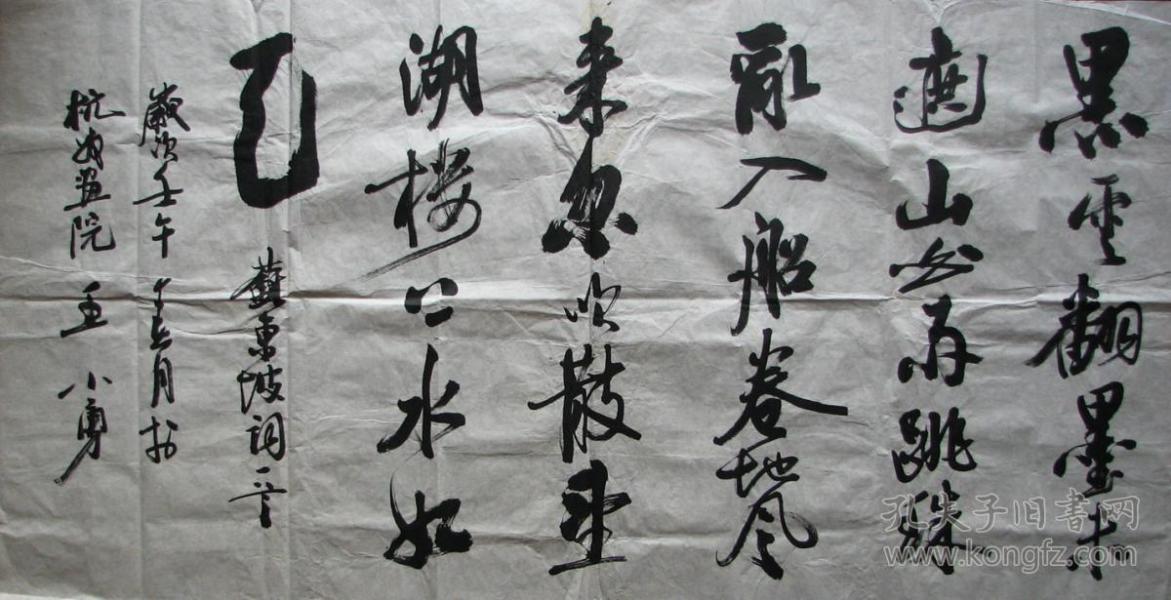 黑雲翻墨未
遮山白雨跳珠
乱入船卷地风
来忽吹散望
湖楼下水如
天
蘇東坡词一首
歲次壬午 月於
杭 画院 王小勇
孔夫子旧书网
www.kongfz.com